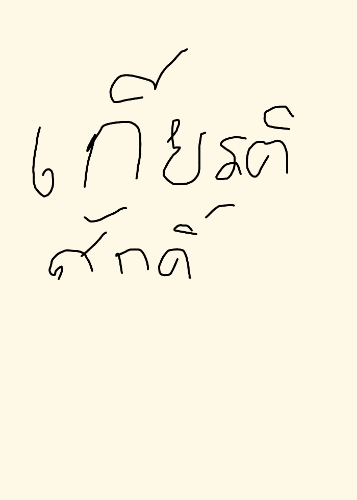 เกียรติ
ศักดิ์